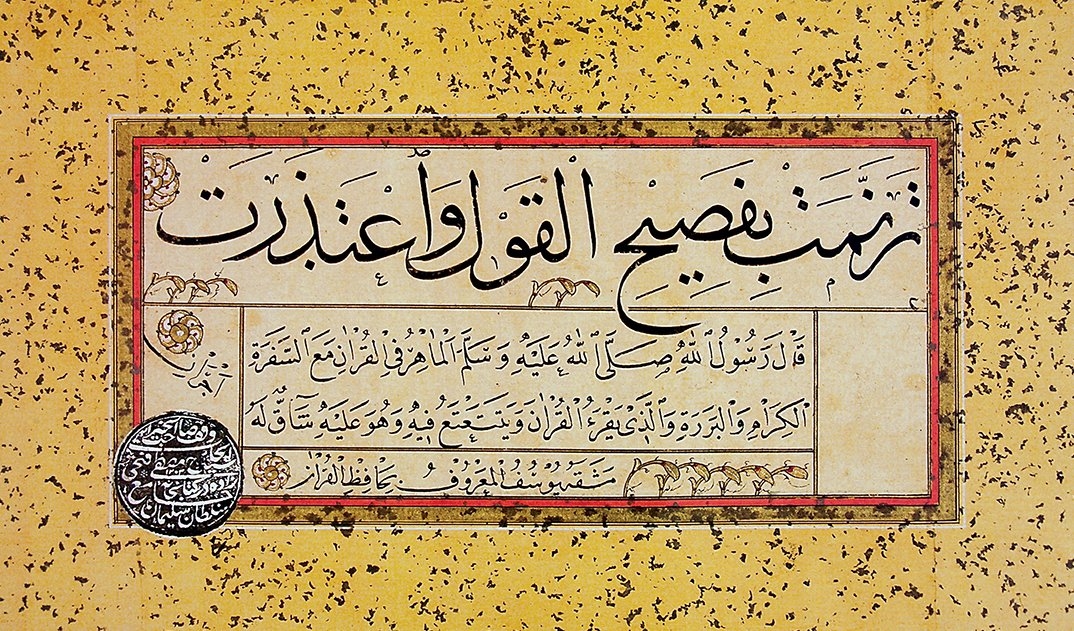 تَرَنَّمَتْ بِفَصِيحِ الْقَوْلِ وَاعْتَذَرَتْ
قَالَ رَسُولُ اللّٰهِ صَلَّى اللّٰهُ عَلَيْهِ وَسَلَّمَ الْمَاهِرُ فِي الْقُرْاٰنِ مَعَ السَّفَرَةِ
الْكِرَامِ وَالْبَرَرَةِ وَالَّذِى يَقْرَءُ الْقُرْاٰنَ وَيَتَتَعْتَعُ فِيهِ وَهُوَ عَلَيْهِ شَاقٌّ لَهُ
مَشَقَهُ يُوسُفُ الْمَعْرُوفُ بِحَافِظِ الْقُرْاٰنِ